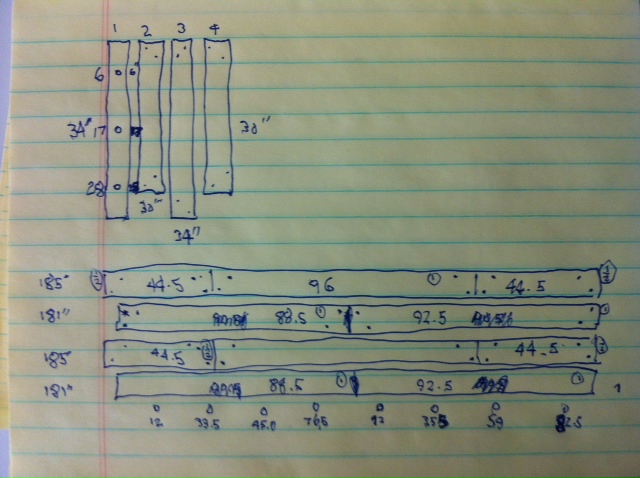 1 2 3 4
6 6"
34" 17 30"
28
30"
34"
185" 44.5 96 44.5
181" 88.5 92.5
185 44.5 44.5
181" 88.5 92.5 1
12 45.0 76.5 59